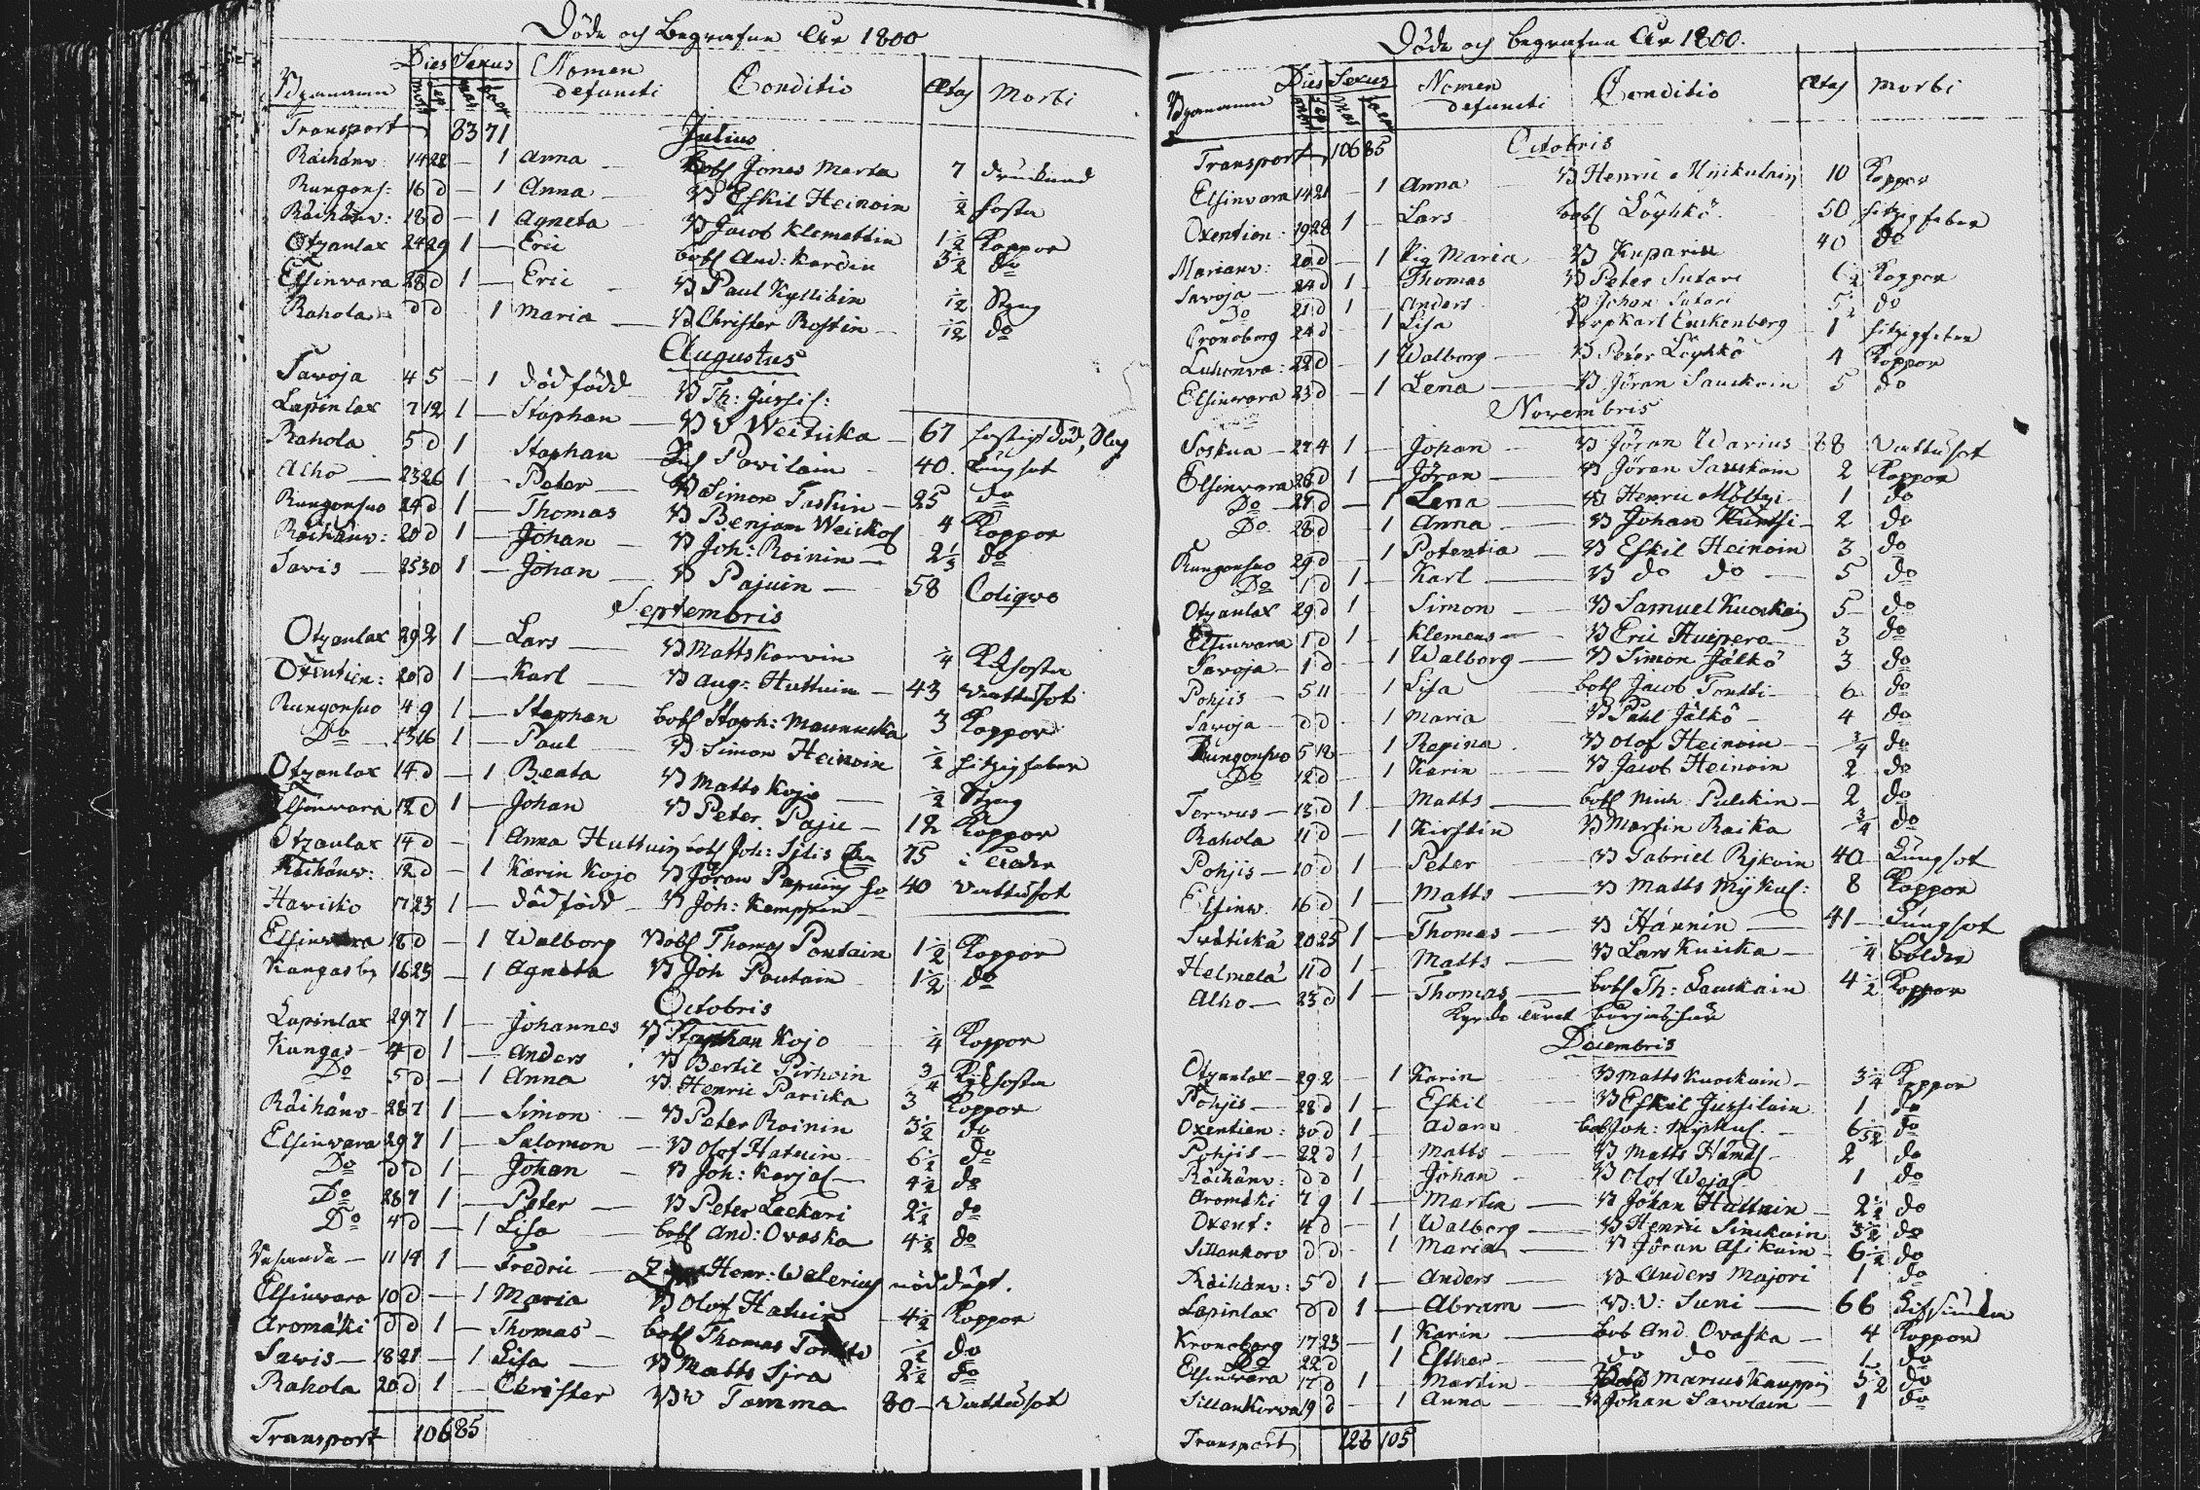 Döde och Begrafne År 1800
Byanamn Dies Sexus Nomen defuncti Conditio Ætas Morbi
Transport 83 71 Julius
Räihänv: 14 22 — 1 Anna — bobs Jonas Marta 7
Rungons: 16 d — 1 Anna — B Eskil Heinoin 1/2 hosta
Räihänv: 18 d — 1 Agneta — B Jacob Klemettin 1 1/2 Koppor
Otzanlax 24 29 1 — Eric bobs And: Kardin 5 1/2 do
Elsinvara 28 d 1 — Eric — B Paul Kyllikin 1/2 Slag
Rahola d d — 1 Maria — B Christer Rostin — 1/2 do
Augustus
Savoja 4 5 — 1 dödfödd B Th: Jussis:
Lapinlax 7 12 1 — Staphan — B W Weitika — 67 hastigt död, Slag
Rahola 5 d 1 Staphan Inh Povilain 40. Lungsot
Alho — 23 26 1 — Peter — B Simon Taskin — 25 do
Rungonsuo 24 d 1 — Thomas B Benjam Weickol 4 Koppor
Räihänv: 20 d 1 — Johan — B Joh: Roinin — 2 1/3 do
Savis — 25 30 1 — Johan — B Pajuin — 58 Coliqvo
Septembris
Otzanlax 29 2 1 — Lars — B Matts Karvin 1/4 Kikhosta
Oxentien: 20 d 1 — Karl — B Aug: Huttuin — 43 Vattusot
Rungonsuo 4 9 1 — Staphan bobs Staph: Maunuska 3 Koppor
Do — 13 16 1 — Paul — B Simon Heinoin 1/2 hitzigfeber
Otzanlax 14 d — 1 Beata B Matts Kojo — 1/2 Slag
Elsinvara 12 d 1 — Johan B Peter Paju — 12 Koppor
Otzanlax 14 d — 1 Anna Huttuin bobs Joh: Silis Enk 75 i ålder
Räihänv: 12 d — 1 Karin Kojo B Jöran Papuins ho 40 Vattusot
Havicko 17 23 1 — dödfödd — B Joh: Kemppin —
Elsinvara 18 d — 1 Walborg bobs Thomas Poutain 1 1/2 Koppor
Kangasby 16 23 — 1 Agneta — B Joh Poutain 1 1/2 do
Octobris
Lapinlax 29 7 1 — Johannes B Staphan Kojo 1/4 Koppor
Kangas — 4 d 1 — Anders B Bertil Pirhoin 3/4 Kikhosta
Do 5 d — 1 Anna B Henric Paricka 3 Koppor
Räihänv — 28 7 1 — Simon — B Peter Roinin 3 1/2 do
Elsinvara 29 7 1 — Salomon — B Olof Hatuin — 6 1/2 do
Do d d 1 — Johan — B Joh: Karjal — 4 1/2 do
Do 28 7 1 — Peter — B Peter Lackari 2 1/2 do
Do 4 d — 1 Lisa — bobs And: Ovaska 4 1/2 do
— 11 14 1 — Fredric — Henr: Walerius nöddöpt.
Elsinvara 10 d — 1 Maria B Olof Hatuin 4 1/2 Koppor
Aromäki d d 1 — Thomas — bobs Thomas 1/2 do
Savis — 18 21 — 1 Lisa — B Matts Sjra 2 1/2 do
Rahola 20 d 1 — Christer B W Tamma 80 — Vattusot
Transport 106 85
Döde och begrafne År 1800.
Byanamn Dies Sexus Nomen defuncti Conditio Ætas Morbi
Transport 106 85 Octobris
Elsinvara 14 21 — 1 Anna — B Henric Miikulain 10 Koppor
Oxentien: 19 28 1 — Lars bobs Löyhkö 50 hitzigfeber
Marianv: 20 d — 1 Pig Maria — B Kuparin 40 do
Savoja — 24 d 1 — Thomas — B Peter Sutari 6 1/2 Koppor
Do 21 d 1 — Anders B Johan Sutari 5 1/2 do
Cronoborg 24 d — 1 Lisa Torpkarl Enckenberg — 1 hitzigfeber
Luhonva: 22 d — 1 Walborg — B Peter Löyhkö 4 Koppor
Elsinvara 23 d — 1 Lena — B Jöran Sauckoin 5 do
Novembris
Soskua — 27 4 1 — Johan — B Jöran Warius 88 Vattusot
Elsinvara 26 d 1 — Jöran — B Jöran Sauskoin 2 Koppor
Do — 27 d — 1 Lena — B Henric Möltzi 1 do
Do 28 d 1 Anna — B Johan Kurtsi — 2 do
Rungonsuo 29 d — 1 Potentia — B Eskil Heinoin 3 do
Do 1 d 1 — Karl — B do do — 5 do
Otzanlax 29 d 1 — Simon — B Samuel Kuockain 5 do
Elsinvara 1 d 1 — Klemens — B Eric Huipero 3 do
Savoja — 1 d — 1 Walborg — B Simon Jälkö 3 do
Pohjis — 5 11 — 1 Lisa bobs Jacob Tontti — 6 do
Savoja — d d — 1 Maria — B Påhl Jälkö — 4 do
Rungonsuo 5 12 — 1 Regina — B Olof Heinoin — 3/4 do
Do 12 d — 1 Karin — B Jacob Heinoin 2 do
Tervus — 13 d 1 — Matts — bobs Mich: Pulckin — 2 do
Rahola 11 d — 1 Kirstin B Martin Raika 3/4 do
Pohjis — 10 d 1 — Peter — B Gabriel Pijkoin 40 Lungsot
Elsinv. 16 d 1 — Matts — B Matts Mykul: 8 Koppor
20 25 1 — Thomas — B Hännin — 41 — Lungsot
Helmelä 11 d 1 — Matts — B Lars Kuicka — 1/4 bölder
Alho — 23 d 1 — Thomas — bobs Th: Sauckain 4 1/2 Koppor
Kyrko året börjas här
Decembris
Otzanlax — 29 2 — 1 Karin — B Matts Kuockain — 3 1/4 Koppor
Pohjis — 28 d 1 — Eskil — B Eskil Jussilain 1 do
Oxentien: 30 d 1 — Adam bobs Joh: Mykul — 6 do
Pohjis — 22 d 1 — Matts — B Matts Hämäl — 2 do
Räihänv: d d 1 — Johan — B Olof Wejal 1 do
Aromäki 7 9 1 — Martin — B Johan Huttuin — 2 1/2 do
Oxent: 4 d — 1 Walborg — B Henric Sinckoin 3 1/2 do
Sillankorv d d — 1 Maria — B Jöran Asikain — 6 1/2 do
Räihänv: 5 d 1 — Anders — B Anders Majori 1 do
Lapinlax d d 1 — Abram — B: V: Suni — 66
Kronoborg 17 23 — 1 Karin — bob And Ovaska — 4 Koppor
Do 22 d 1 Esther — do do — 1 do
Elsinvara 17 d 1 — Martin — Marcus Kauppin 5 1/2 do
Sillankorva 19 d — 1 Anna — B Johan Savolain — 1 do
Transport 126 105